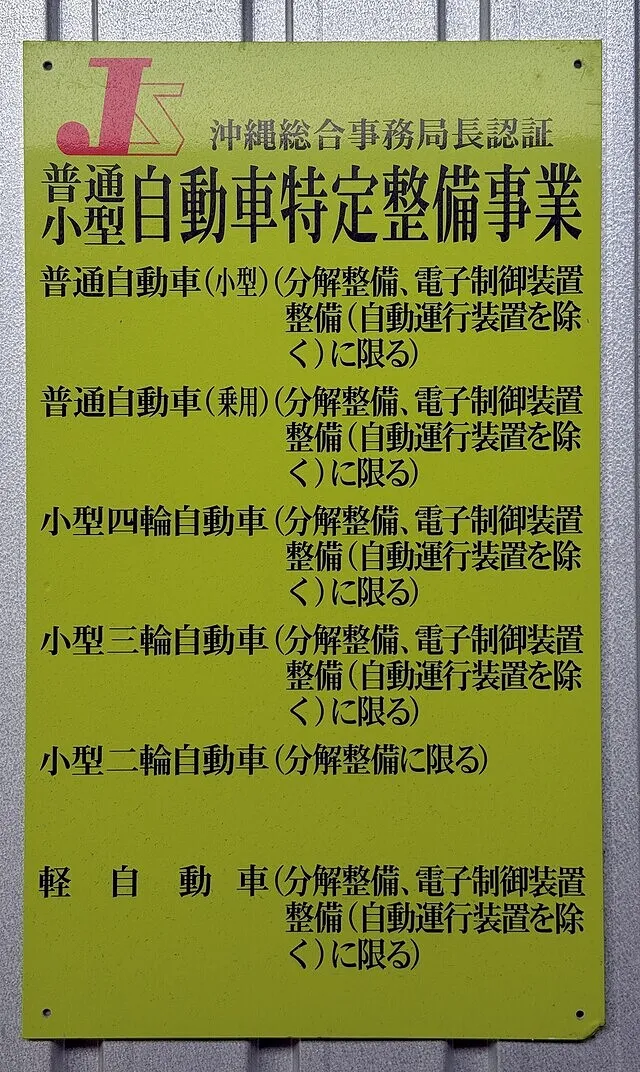 JS
沖縄総合事務局長認証
普通
小型
自動車特定整備事業
普通自動車(小型)(分解整備、電子制御装置
整備(自動運行装置を除
く)に限る)
普通自動車(乗用)(分解整備、電子制御装置
整備(自動運行装置を除
く)に限る)
小型四輪自動車(分解整備、電子制御装置
整備(自動運行装置を除
く)に限る)
小型三輪自動車(分解整備、電子制御装置
整備(自動運行装置を除
く)に限る)
小型二輪自動車(分解整備に限る)
軽自動車(分解整備、電子制御装置
整備(自動運行装置を除
く)に限る)